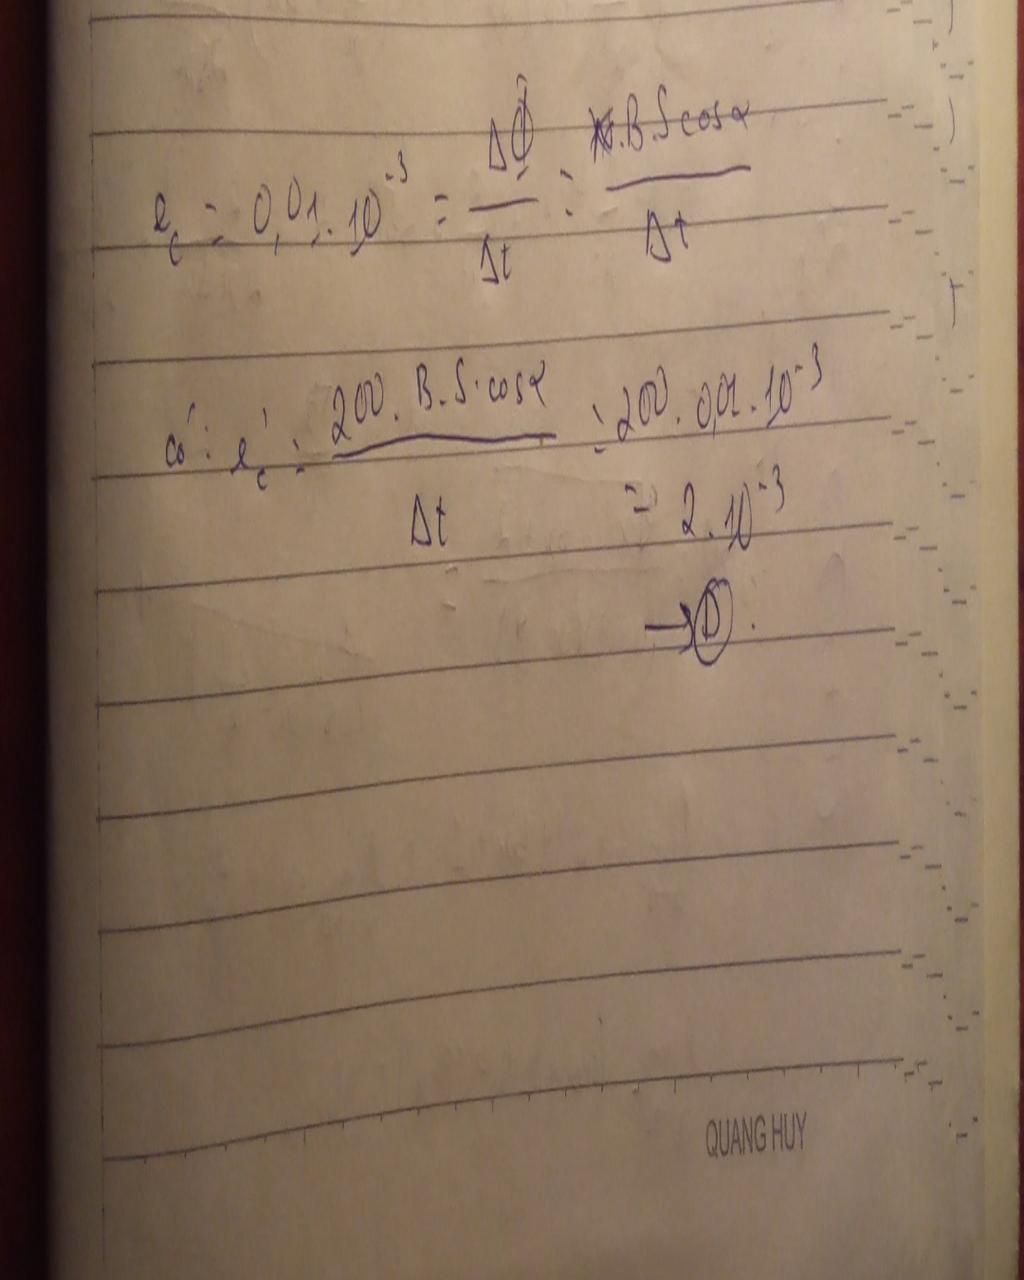 e_c = 0,01.10^-3 = ΔΦ/Δt = N.B.S cosα/Δt
có: e_c' = 200.B.S.cosα/Δt = 200.0,01.10^-3
= 2.10^-3
→ D.
QUANG HUY